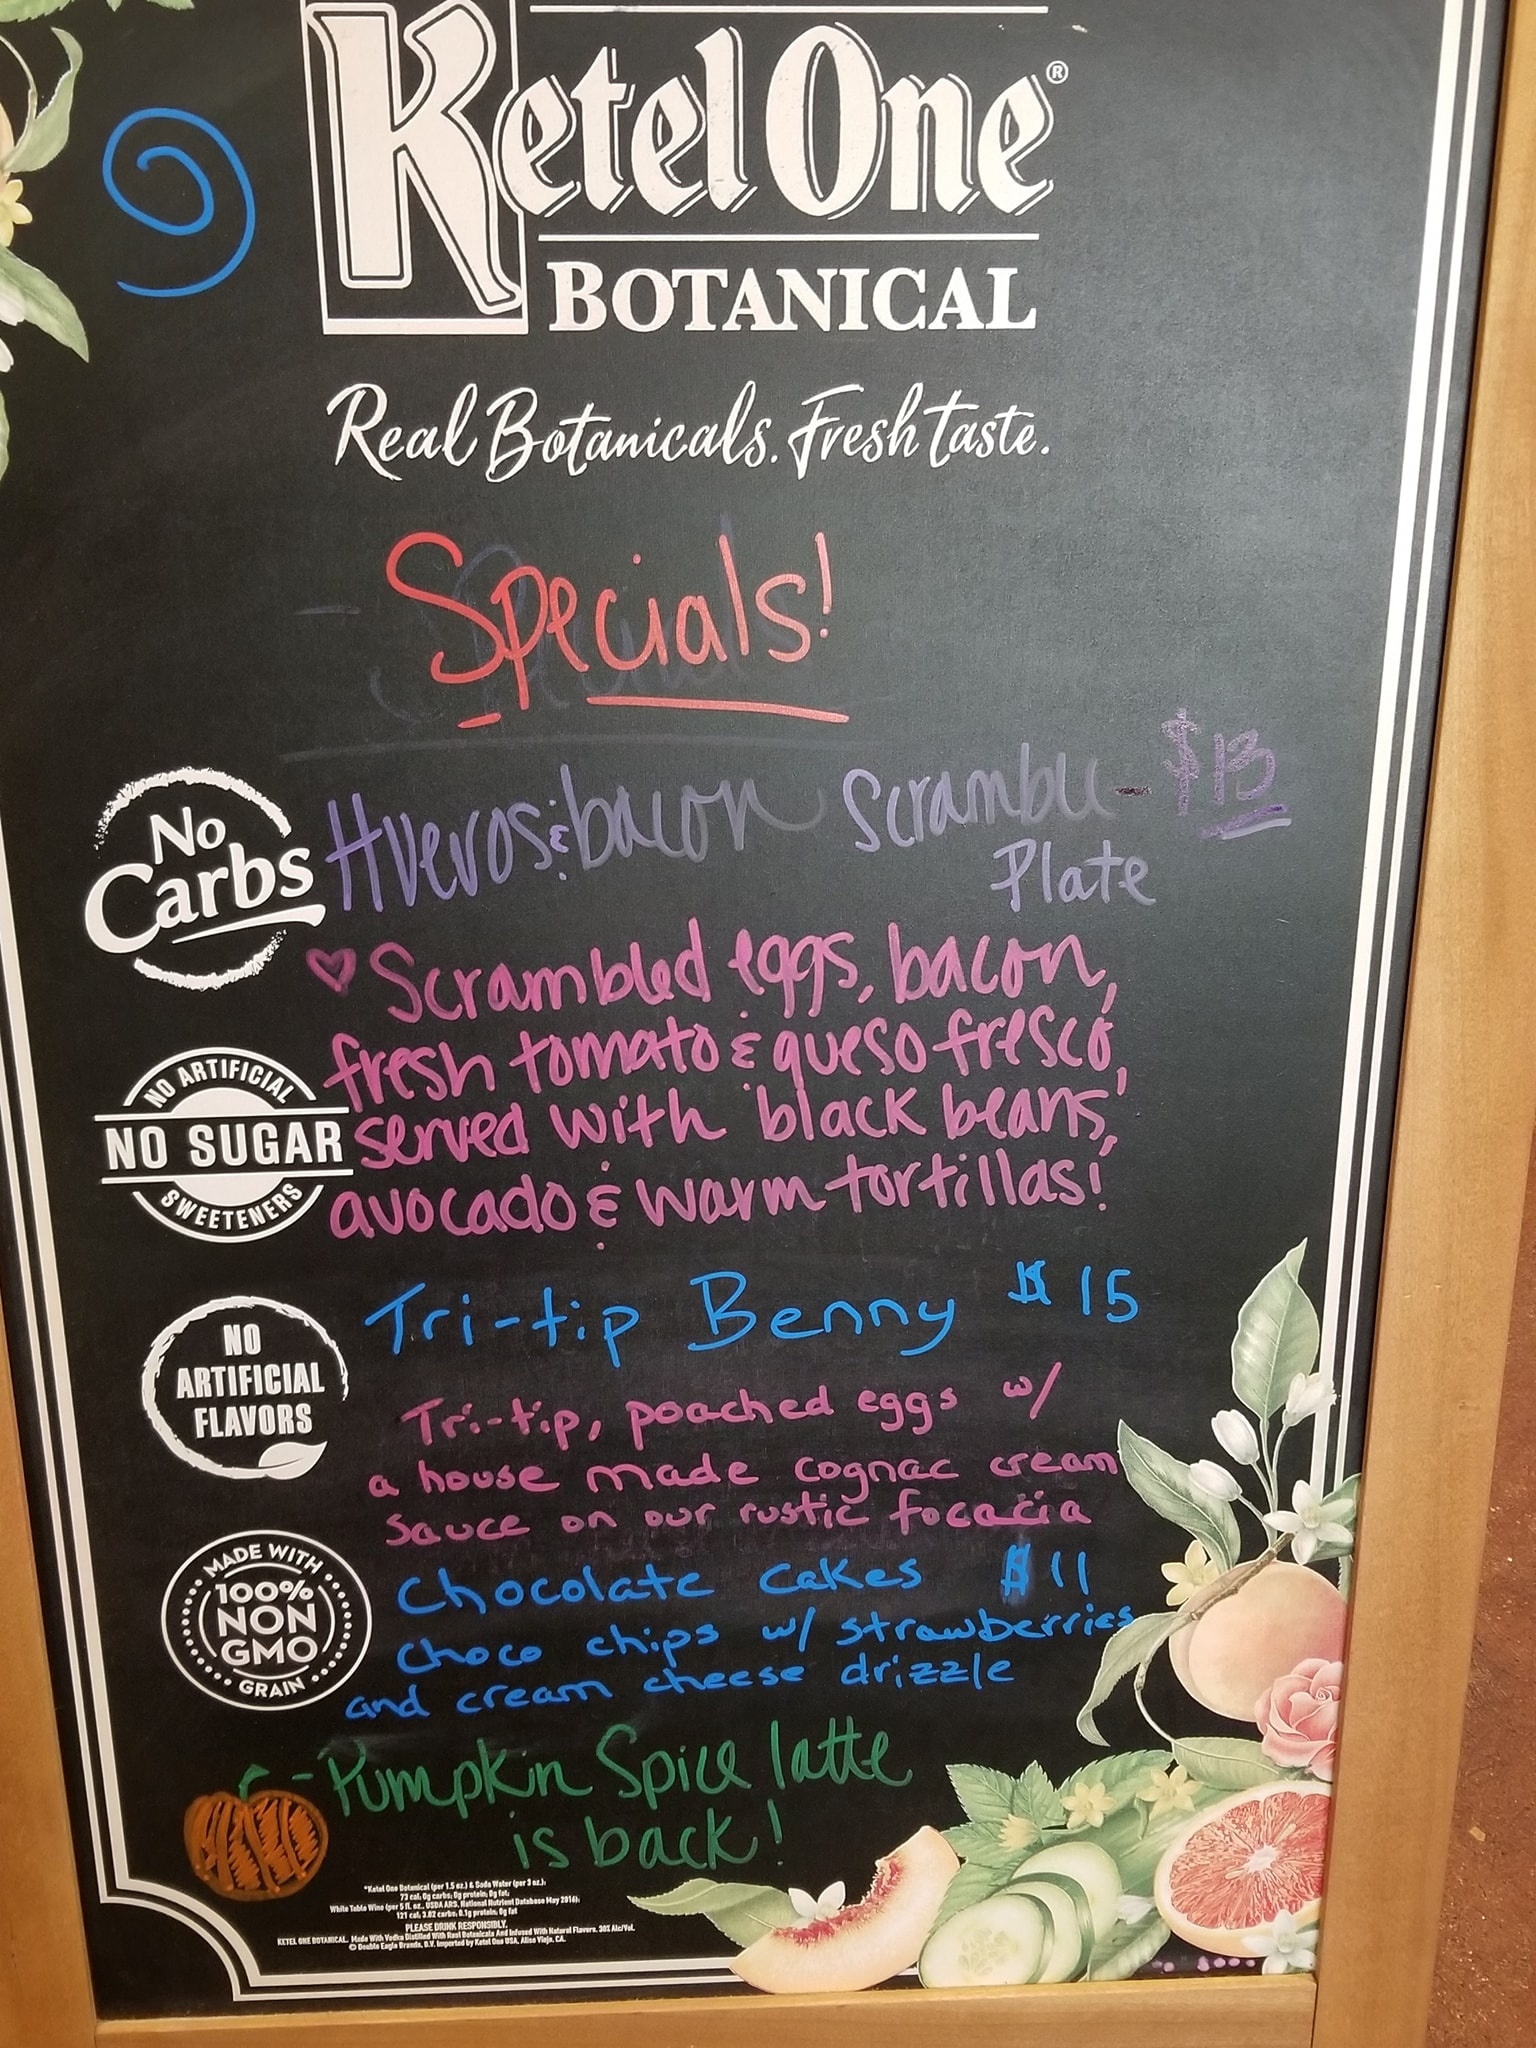 Ketel One®
BOTANICAL
Real Botanicals. Fresh taste.
Specials!
No
Carbs
Huevos & bacon Scramble - $13
Plate
Scrambled eggs, bacon,
fresh tomato & queso fresco,
served with black beans,
avocado & warm tortillas!
NO ARTIFICIAL
NO SUGAR
SWEETENERS
Tri-tip Benny $15
NO
ARTIFICIAL
FLAVORS
Tri-tip, poached eggs w/
a house made cognac cream
sauce on our rustic focaccia
MADE WITH
100%
NON
GMO
GRAIN
Chocolate Cakes $11
Choco chips w/ strawberries
and cream cheese drizzle
- Pumpkin Spice latte
is back!
*Ketel One Botanical (per 1.5 oz.) & Soda Water (per 3 oz.):
73 cal; 0g carbs; 0g protein; 0g fat;
White Table Wine (per 5 fl. oz., USDA ARS, National Nutrient Database May 2016):
121 cal; 3.82 carbs; 0.1g protein; 0g fat
PLEASE DRINK RESPONSIBLY.
KETEL ONE BOTANICAL. Made With Vodka Distilled With Real Botanicals And Infused With Natural Flavors. 30% Alc/Vol.
© Double Eagle Brands, B.V. Imported by Ketel One USA, Aliso Viejo, CA.